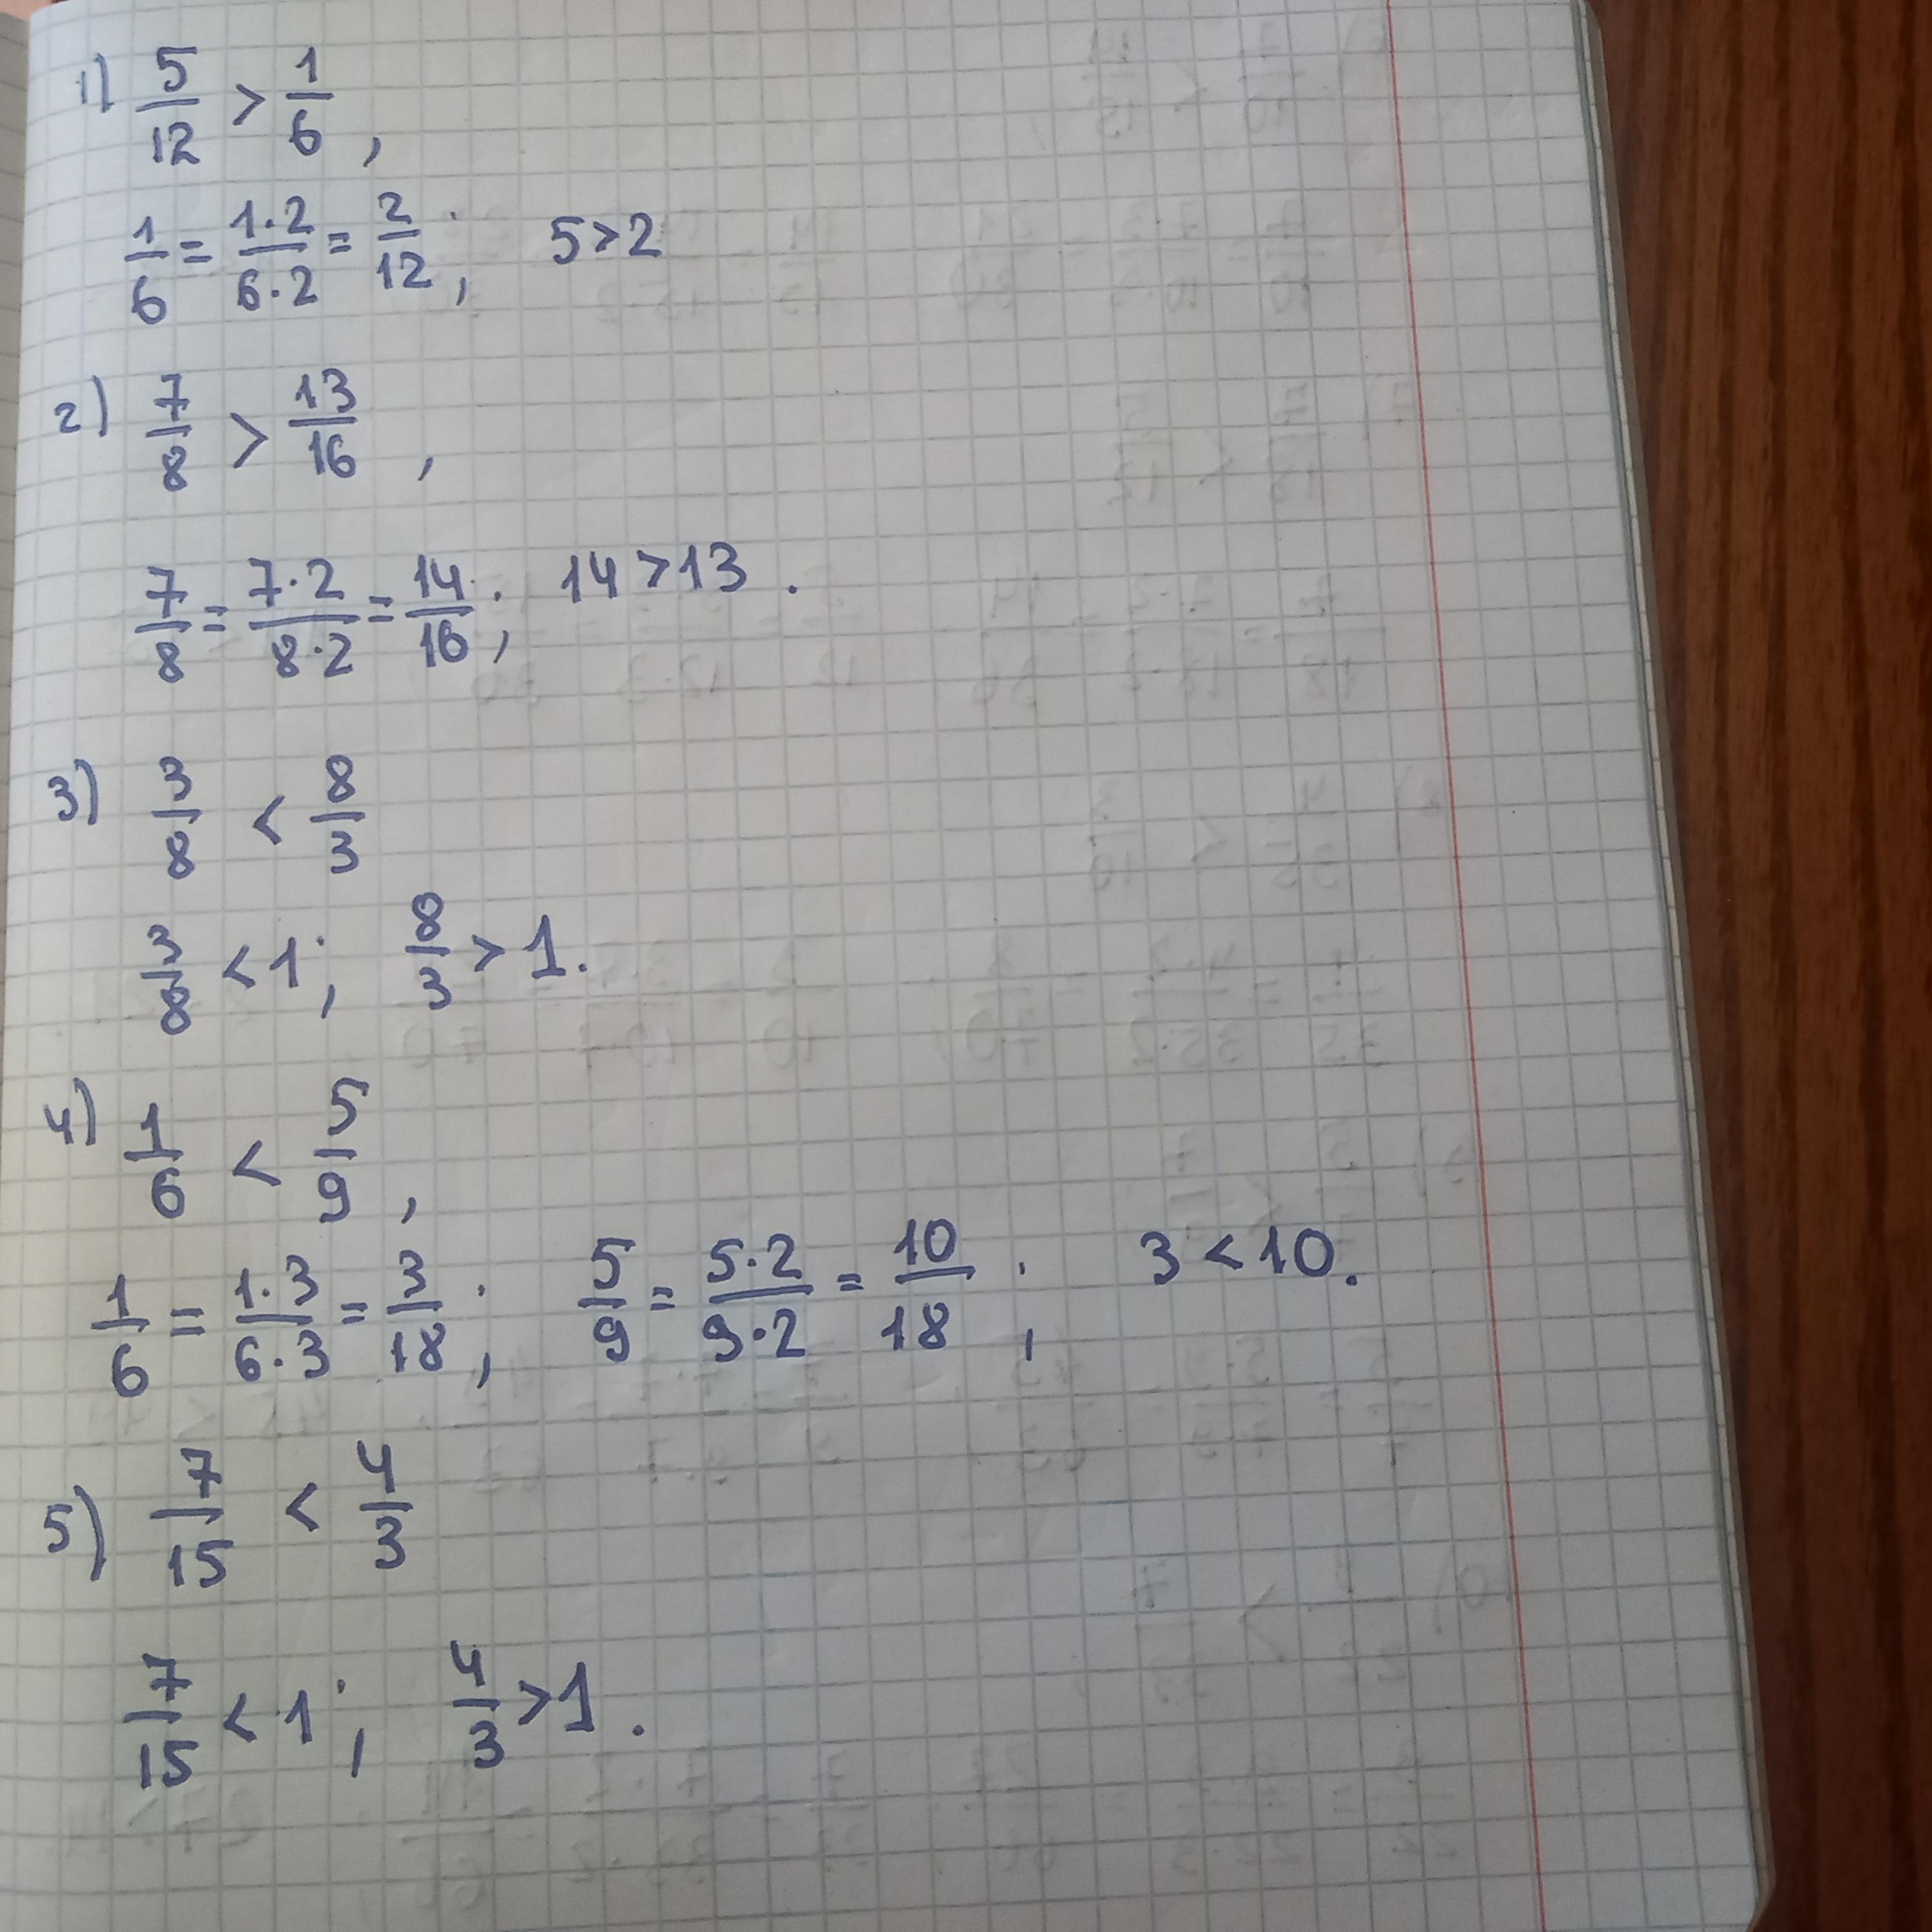 1) 5/12 > 1/6 ,
1/6 = 1·2/6·2 = 2/12 ; 5>2
2) 7/8 > 13/16 ,
7/8 = 7·2/8·2 = 14/16 ; 14>13 .
3) 3/8 < 8/3
3/8 < 1 ; 8/3 > 1.
4) 1/6 < 5/9 ,
1/6 = 1·3/6·3 = 3/18 ; 5/9 = 5·2/9·2 = 10/18 ; 3 < 10.
5) 7/15 < 4/3
7/15 < 1 ; 4/3 > 1 .